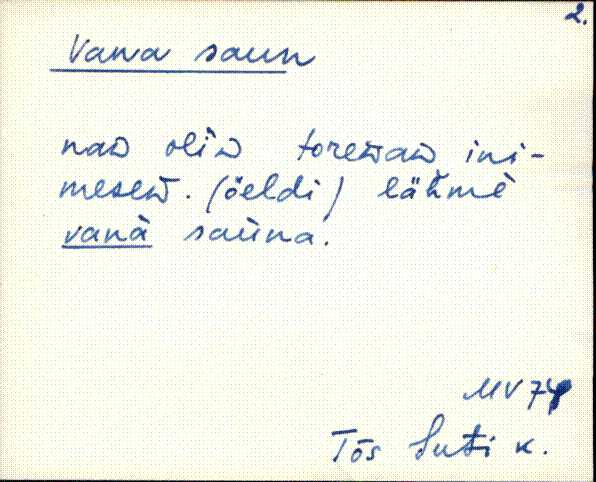 2.
Vana saun
nad oliD toreDaD ini-
meseD. (öeldi) lähme
vanà saùna.
MV 74
Tõs Suti k.